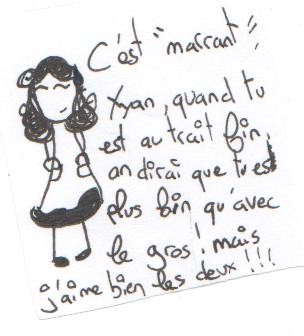 C'est "marrant"
Xyan, quand tu
est au trait fin,
on dirai que tu es
plus fin qu'avec
le gros! mais
j'aime bien les deux!!!